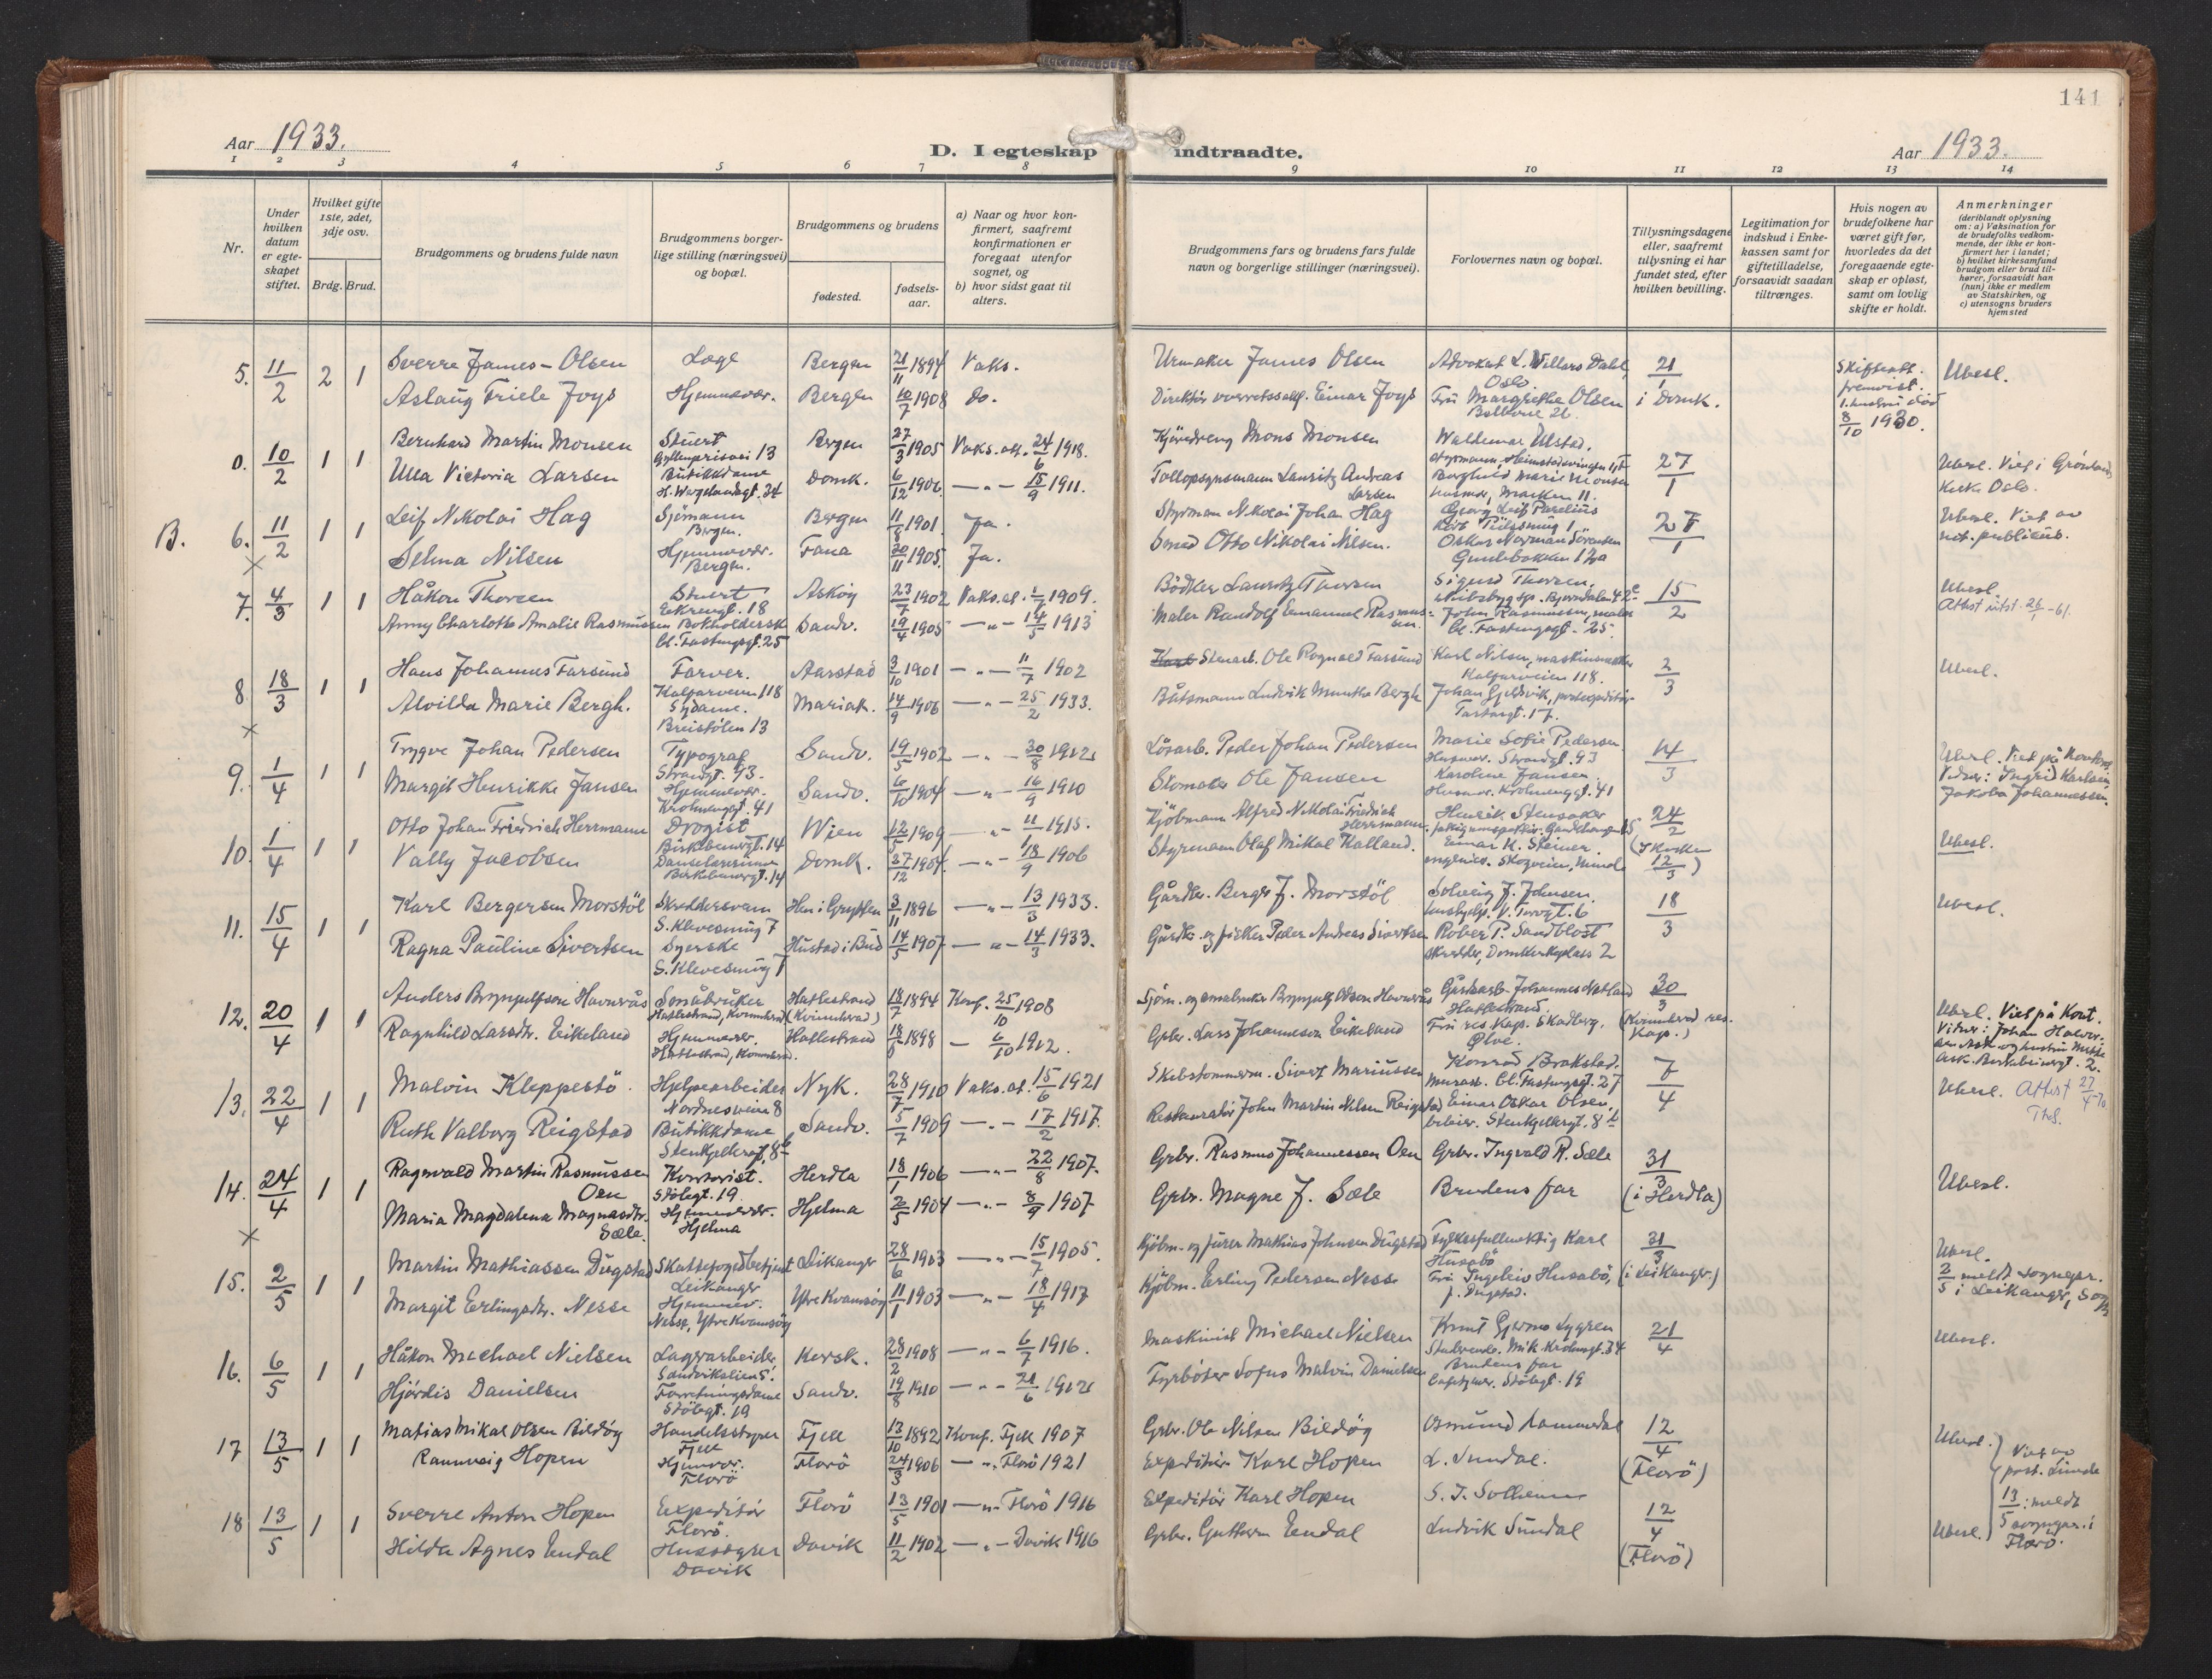 141
Aar 1933.
D. I egteskap indtraadte.
Aar 1933.
1 2 3 4 5 6 7 8 9 10 11 12 13 14
Nr.
Under hvilken datum er egteskapet stiftet.
Hvilket gifte 1ste, 2det, 3dje osv.
Brdg. Brud.
Brudgommens og brudens fulde navn
Brudgommens borgerlige stilling (næringsvei) og bopæl.
Brudgommens og brudens
fødested.
fødselsaar.
a) Naar og hvor konfirmert, saafremt konfirmationen er foregaat utenfor sognet, og
b) hvor sidst gaat til alters.
Brudgommens fars og brudens fars fulde navn og borgerlige stillinger (næringsvei).
Forlovernes navn og bopæl.
Tillysningsdagene eller, saafremt tillysning ei har fundet sted, efter hvilken bevilling.
Legitimation for indskud i Enkekassen samt for giftetilladelse, forsaavidt saadan tiltrænges.
Hvis nogen av brudefolkene har været gift før, hvorledes da det foregaaende egteskap er opløst, samt om lovlig skifte er holdt.
Anmerkninger
(deriblandt oplysning om: a) Vaksination for de brudefolks vedkommende, der ikke er konfirmert her i landet; b) hvilket kirkesamfund brudgom eller brud tilhører, forsaavidt han (hun) ikke er medlem av Statskirken, og c) utensogns bruders hjemsted
5. 11/2 2 1 Sverre James-Olsen Læge Bergen 21/11 1894 Vaks. Urmaker James Olsen Advokat L. Villars Dahl, Oslo 21/1 i Domk. Skifteatt. fremvist. 1. hustru död 8/10 1930. Ubesl.
Aslaug Friele Joys Hjemmevær. Bergen 10/7 1908 do. Direktör overretssakf. Einar Joys Fru Margrethe Olsen
0. 10/2 1 1 Bernhard Martin Monsen Stuert 13 Bergen 27/3 1905 Vaks.att. 24/6 1918. Mons Monsen Waldemar Ulstad, 27/1 Ubesl. Viet i Grönlands Kirke Oslo.
Ulla Victoria Larsen Butikkdame H. Wergelandsgt. 34 Domk. 6/12 1906 —"— 15/9 1911. Tollopsynsmann Lauritz Andreas Larsen Borghild Marie Monsen husmor, Marken 11.
B. 6. 11/2 1 1 Leif Nikolai Hag Sjömann Bergen. Bergen 11/8 1901. Ja. Styrmann Nikolai Johan Hag Georg Leif Parelius 27/1 Ubesl. Viet av not. publicus.
× Selma Nilsen Hjemmevær. Bergen. Fana 20/11 1905. Ja. Smed Otto Nikolai Nilsen. Oskar Norman Sörensen
7. 4/3 1 1 Håkon Thorsen Stuert Eekrengt. 18 Asköy 23/7 1902 Vaks.at. 1909. Bödker Lauritz Thorsen Sigurd Thorsen, 15/2 Ubesl.
Anny Charlotte Amalie Rasmussen Bokholderske Cl. Fastingsgt. 25 Sandv. 19/4 1905 —"— 14/5 1913 Maler Randolf Emanuel Rasmussen. John Rasmussen, maler Cl. Fastingsgt. 25. Attst utst. 26/1-61.
8 18/3 1 1 Hans Johannes Farsund Farver. Kalfarveien 118 Aarstad 3/10 1901 —"— 11/7 1902 Stenarb. Ole Rognald Farsund Karl Nilsen, Kalfarveien 118. 2/3 Ubesl.
× Alvilda Marie Bergh. Sydame. Breistölen 13 Mariak. 14/9 1906 —"— 25/2 1933. Båtsmann Ludvik Munthe Bergh Johan Gjeldsvik,
9. 1/4 1 1 Trygve Johan Pedersen Typograf Strandgt. 93. Sandv. 19/5 1902 —"— 30/8 1912 Lösarb. Peder Johan Pedersen Marie Sofie Pedersen Husmor. Strandgt. 93 14/3 Ubesl. Viet på Kontoret Vidner: Ingrid Karlsen, Jakoba Johannessen.
Margit Henrikke Jansen Hjemmevær. Krohnenggt. 41 Sandv. 6/10 1904 —"— 16/9 1910 Skomaker Ole Jansen Karoline Jansen Husmor. Krohnenggt. 41
10. 1/4 1 1 Otto Johan Friedrich Herrmann Drogist Birkebeinergt. 14 Wien 12/5 1909 —"— 11 1915. Kjöbmann Alfred Nikolai Friedrich Herrmann. Henrik Stensaker 24/2 Ubesl.
Vally Jacobsen Birkebeinergt. 14 Domk. 27/12 1904. —"— 18/9 1906 Styrmann Olaf Mikal Kalland. Einar H. Steiner 12/3)
11. 15/4 1 1 Karl Bergersen Morstöl Skreddersvenn S. Klevesmug 7 Hen i Grytten 3/11 1896 —"— 13/3 1933. Gårdbr. Berger J. Morstöl Solveig J. Johnsen. 18/3 Ubesl.
Ragna Pauline Sivertsen Syerske S. Klevesmug 7 Hustad i Bud 14/5 1907 —"— 14/3 1933. Gårdbr. og fisker Peder Andreas Sivertsen Rober P. Sandblost skredder, Domkirkeplass 2
12. 20/4 1 1 Anders Brynjulfsen Havnerås Småbruker Hatlestrand, Kvinnherad Hatlestrand (Kvinnherad) 18/7 1894 Konf. 25/10 1908 Sjöm. og småbruker Brynjulf Olsen Havnerås Gårdarb. Johannes Natland Hatlestrand. 30/3 (Kvinnherad res. Kap.) Ubesl. Viet på Kont. Vidner: Johan Halvor-
Ragnhild Larsdtr. Eikeland Hjemmevær. Hatlestrand, Kvinnherad. Hatlestrand 18 1898 — 6/10 1912. Grbr. Lars Johannessen Eikeland Fru res. Kap. Skadberg. Ölve. sen Ask og hustru Ask. Birkebeinergt. 2.
13. 22/4 1 1 Malvin Kleppestö. Hjelpearbeider Nordnesveien 8 Nyk. 28/7 1910 Vaks.at. 15/6 1921 Skibstömmerm. Sivert Mariussen Konrad Brakstad. Murarb. Cl. Fastingsgt. 27 7/4 Ubesl. Attst 27/4-70
Ruth Valborg Reigstad Butikkdame Stenkjellergt. 8 Sandv. 5/7 1909 —"— 17/2 1917. Restauratör John Martin Nilsen Reigstad Einar Oskar Olsen, Stenkjellergt. 8
14. 24/4 1 1 Ragnvald Martin Rasmussen Oen Kontorist. Stölegt. 19. Herdla 18/1 1906 —"— 22/8 1907. Grbr. Rasmus Johannessen Oen Grbr. Ingvald R. Sæle 31/3 (i Herdla) Ubesl.
× Maria Magdalena Magnusdtr. Sæle. Hjemmevær. Hjelma Hjelma 2/5 1904 —"— 8/9 1907 Grbr. Magne J. Sæle Brudens far
15. 2/5 1 1 Martin Mathiassen Dugstad Skattefogedbetjent Leikanger Leikanger 28/6 1903 —"— 15/7 1905. Kjöbm. og jurer Mathias Johnsen Dugstad Fylkesfullmektig Karl Husabö 31/3 (i Leikanger) Ubesl. 2/5 meldt sognepr. i Leikanger, Sogn
Margit Erlingsdtr. Nesse Hjemmev. Nesse, Ytre Kvamsöy Ytre Kvamsöy 11/1 1903 —"— 18/4 1917 Kjöbm. Erling Pedersen Nesse Fru Ingeleiv Husabö, f. Dugstad.
16. 6/5 1 1 Håkon Michael Nielsen Lagerarbeider, Sandvikslien 5. Korsk. 28/2 1908 —"— 6/7 1916. Maskinist Michael Nielsen Knut Gjermo Lygren 21/4 Ubesl.
Hjördis Danielsen Forretningsdame Stölegt. 19 Sandv. 19/8 1910 —"— 21/6 1912 Fyrböter Sofus Malvin Danielsen Brudens far Stölegt. 19
17 13/5 1 1 Matias Mikal Olsen Bildöy Handelsstyrer Fjell Fjell 13/10 1892 Konf. Fjell 1907 Grbr. Ole Nilsen Bildöy Osmund Lammedal 12/4 (Florö) Ubesl. Viet av past. Lunde
Rannveig Hopen Hjemmev. Florö Florö 24/3 1906 —"— Florö 1921 Expeditör Karl Hopen L. Sundal. 13/5 meldt sognepr. i Florö.
18 13/5 1 1 Sverre Anton Hopen Expeditör Florö. Florö 13/5 1901 —"— Florö 1916 Expeditör Karl Hopen S. J. Solheim 12/4 (Florö) Ubesl.
Hilda Agnes Endal Husstyrer Davik Davik 11/2 1902 —"— Davik 1916 Grbr. Guttorm Endal Ludvik Sundal